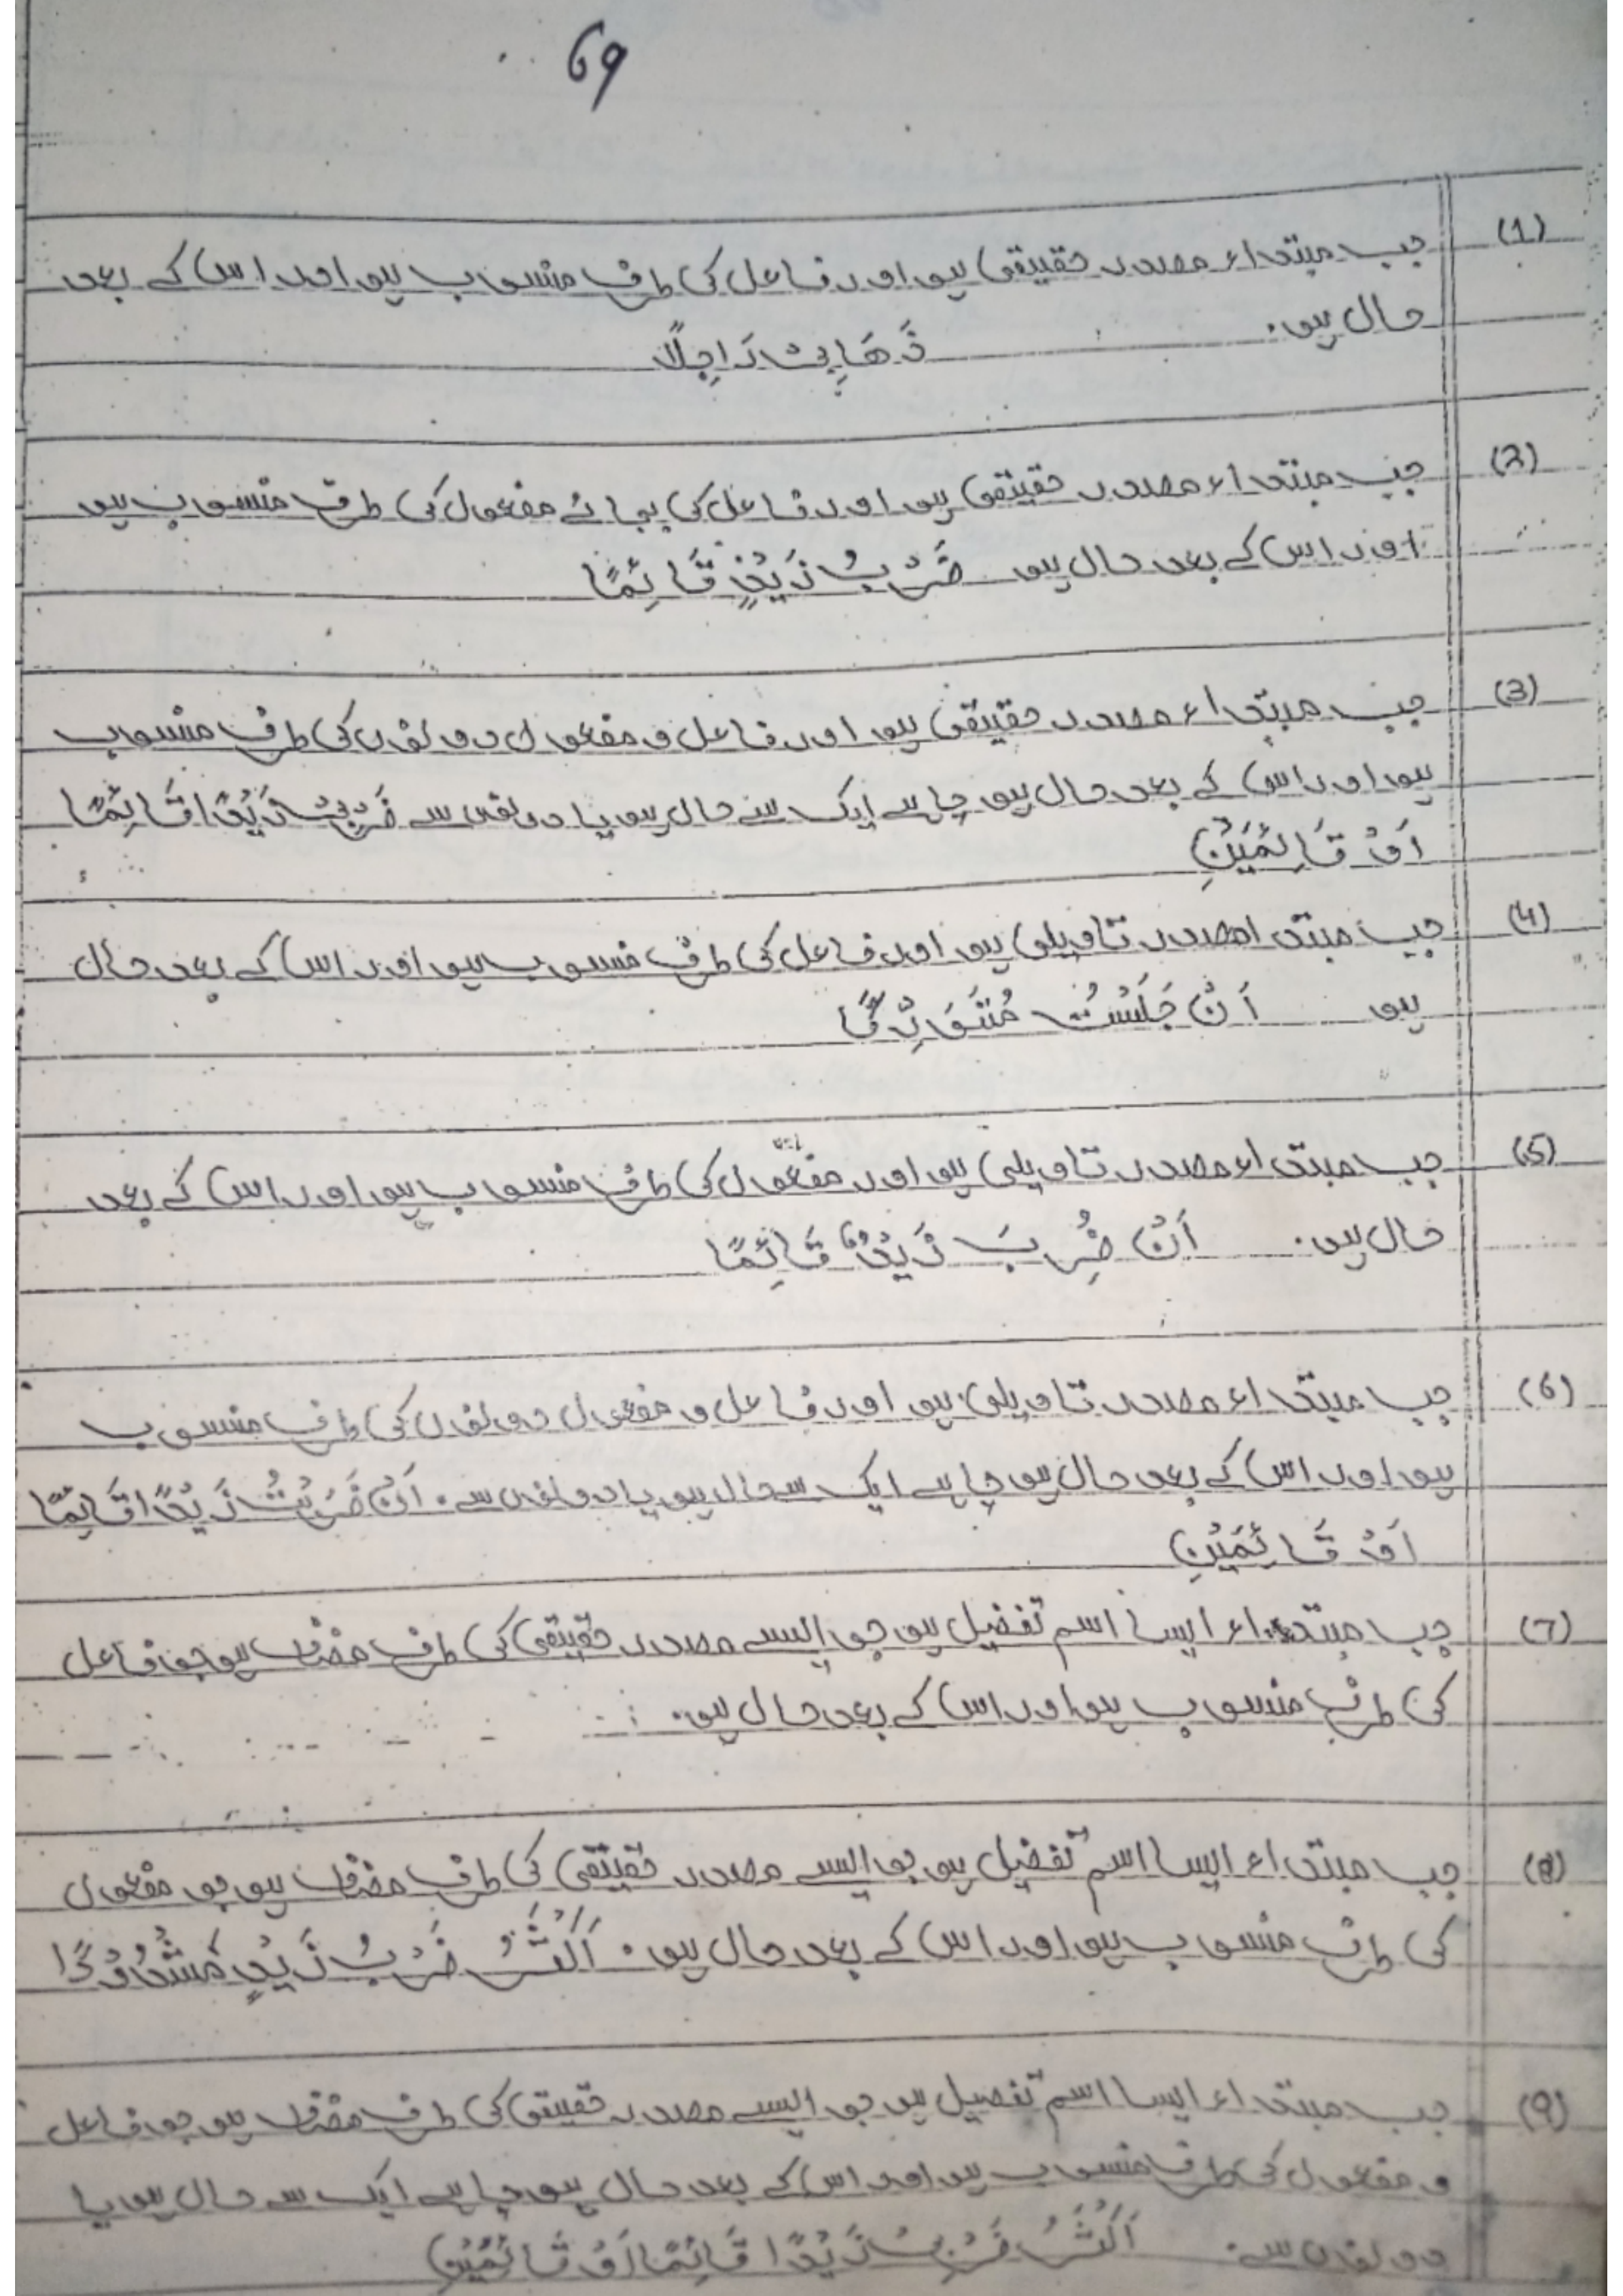 69
(1) جب مبتداء مصدر حقیقی ہو اور فاعل کی طرف منسوب ہو اور اس کے بعد
حال ہو۔ ذَهَابِیْ رَاجِلًا
(2) جب مبتداء مصدر حقیقی ہو اور فاعل کی بجائے مفعول کی طرف منسوب ہو
اور اس کے بعد حال ہو ضَرْبُ زَیْدٍ قَائِمًا
(3) جب مبتداء مصدر حقیقی ہو اور فاعل و مفعول دونوں کی طرف منسوب
ہو اور اس کے بعد حال ہو چاہے ایک سے حال ہو یا دونوں سے ضَرْبِیْ زَیْدًا قَائِمًا
اَوْ قَائِمَیْنِ
(4) جب مبتدا مصدر تاویلی ہو اور فاعل کی طرف منسوب ہو اور اس کے بعد حال
ہو اَنْ جَلَسْتُ
(5) جب مبتداء مصدر تاویلی ہو اور مفعول کی طرف منسوب ہو اور اس کے بعد
حال ہو۔ اَنْ ضُرِبَ زَیْدٌ قَائِمًا
(6) جب مبتداء مصدر تاویلی ہو اور فاعل و مفعول دونوں کی طرف منسوب
ہو اور اس کے بعد حال ہو چاہے ایک سے حال ہو یا دونوں سے۔ اَنْ ضَرَبْتُ زَیْدًا قَائِمًا
اَوْ قَائِمَیْنِ
(7) جب مبتداء ایسا اسم تفضیل ہو جو ایسے مصدر حقیقی کی طرف مضاف ہو جو فاعل
کی طرف منسوب ہو اور اس کے بعد حال ہو۔
(8) جب مبتداء ایسا اسم تفضیل ہو جو ایسے مصدر حقیقی کی طرف مضاف ہو جو مفعول
کی طرف منسوب ہو اور اس کے بعد حال ہو۔ اَکْثَرُ ضَرْبُ زَیْدٍ مَشْدُوْدًا
(9) جب مبتداء ایسا اسم تفضیل ہو جو ایسے مصدر حقیقی کی طرف مضاف ہو جو فاعل
و مفعول کی طرف منسوب ہو اور اس کے بعد حال ہو چاہے ایک سے حال ہو یا
دونوں سے۔ اَکْثَرُ ضَرْبِیْ زَیْدًا قَائِمًا اَوْ قَائِمَیْنِ